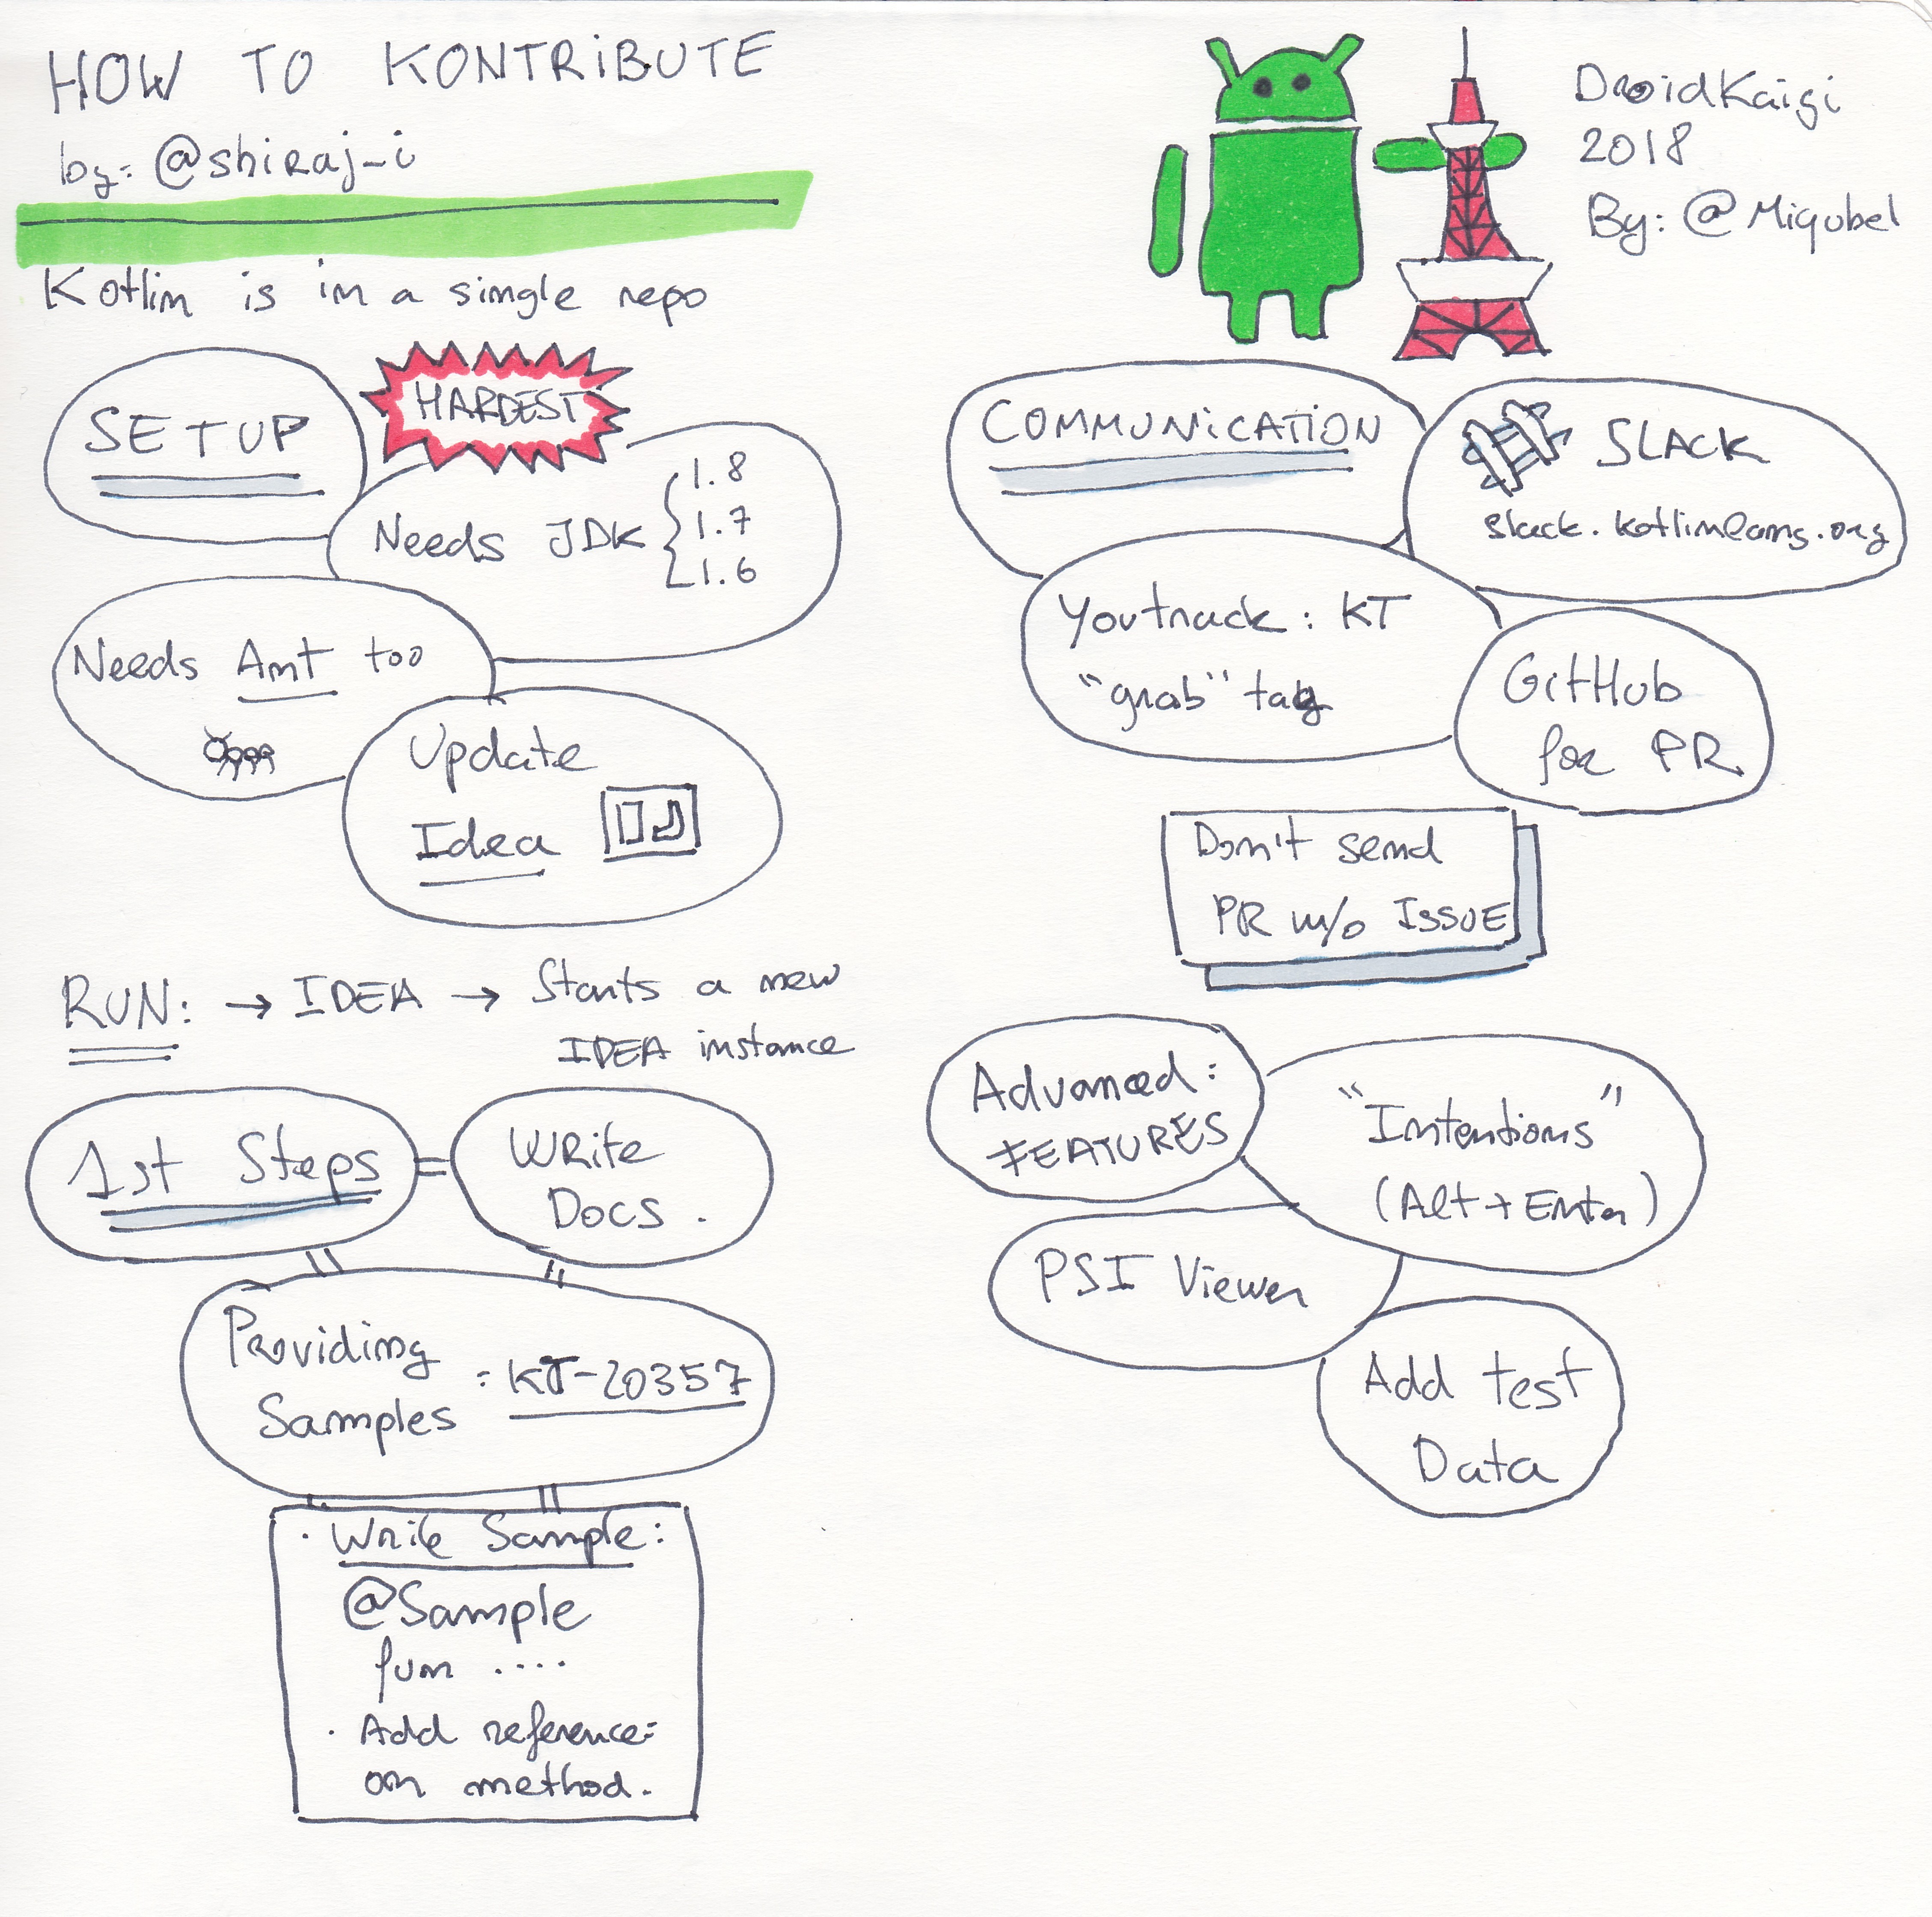 HOW TO KONTRiBUTE
by: @shiraj_i
DroidKaigi
2018
By: @Miqubel
Kotlin is in a single repo
SETUP
HARDEST
Needs JDK { 1.8
1.7
1.6
Needs Ant too
Update
Idea IJ
RUN: → IDEA → Starts a new
IDEA instance
1st Steps = Write
Docs.
Providing
Samples : KT-20357
· Write Sample:
@Sample
fun ....
· Add reference:
on method.
COMMUNiCATiON
SLACK
slack.kotlinlang.org
Youtrack: KT
"grab" tag
GitHub
for PR
Don't send
PR w/o ISSUE
Advanced:
FEATURES
"Intentions"
(Alt + Enter)
PSI Viewer
Add test
Data